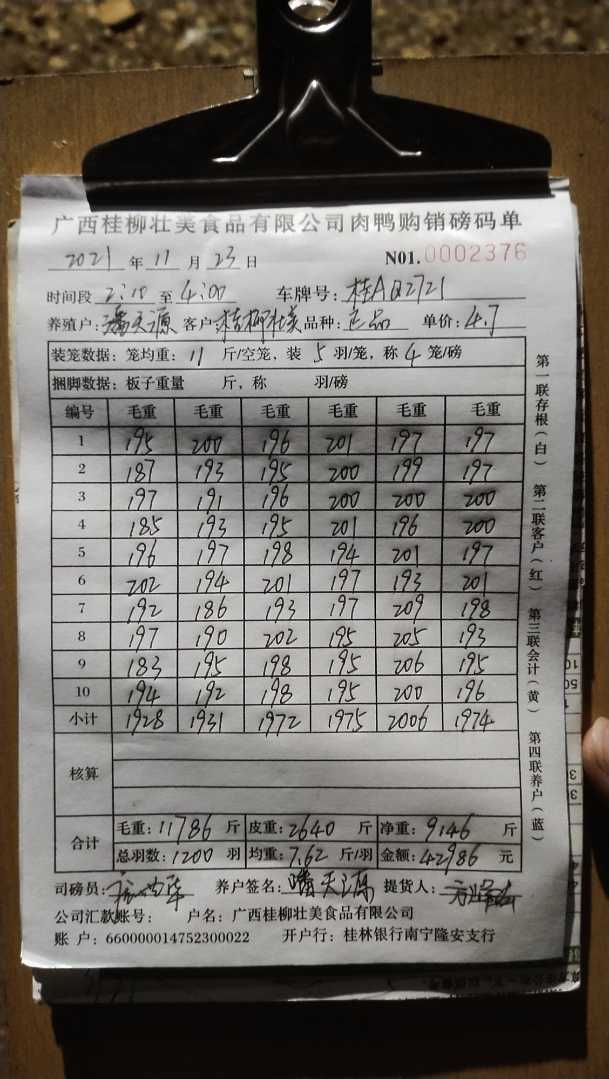 广西桂柳壮美食品有限公司肉鸭购销磅码单
2021 年 11 月 23 日 N01.0002376
时间段 2:10 至 4:00 车牌号: 桂AQ2721
养殖户: 潘天源 客户: 桂柳壮美 品种: 正品 单价: 4.7
装笼数据: 笼均重: 11 斤/空笼, 装 5 羽/笼, 称 4 笼/磅
捆脚数据: 板子重量 斤, 称 羽/磅
编号 毛重 毛重 毛重 毛重 毛重 毛重
1 195 200 196 201 197 197
2 187 193 195 200 199 197
3 197 191 196 200 200 200
4 185 193 195 201 196 200
5 196 197 198 194 201 197
6 202 194 201 197 193 201
7 192 186 193 197 209 198
8 197 190 202 195 205 193
9 183 195 198 195 206 195
10 194 192 198 195 200 196
小计 1928 1931 1972 1975 2006 1974
核算
合计 毛重: 11786 斤 皮重: 2640 斤 净重: 9146 斤
总羽数: 1200 羽 均重: 7.62 斤/羽 金额: 42986 元
司磅员: 养户签名: 潘天源 提货人:
公司汇款账号: 户名: 广西桂柳壮美食品有限公司
账 户: 660000014752300022 开户行: 桂林银行南宁隆安支行
第一联存根(白) 第二联客户(红) 第三联会计(黄) 第四联养户(蓝)